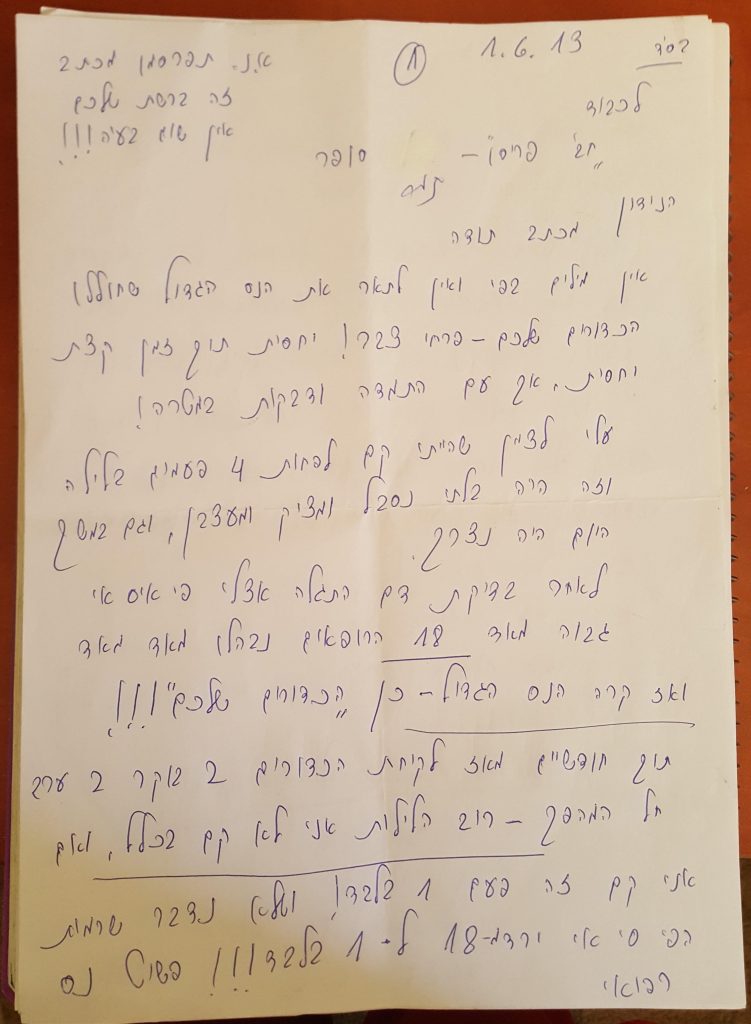 בס"ד
1.6.13
1
א.נ. תפרסמן מכתב
זה ברשת שלכם
אין שום בעיה!!!
לכבוד
"חב' פריסן" – סופר
הנידון
מכתב תודה
אין מילים בפי ואין לתאר את הנס הגדול שחוללו
הכדורים שלכם – פרחי צבר! יחסית תוך זמן קצת
יחסית, אך עם התמדה ודבקות במטרה!
עלי לציין שהייתי קם לפחות 4 פעמים בלילה
וזה היה בלתי נסבל ומציק ומעצבן, וגם במשך
היום היה נצרך.
לאחר בדיקת דם התגלה אצלי פי איס אי
גבוה מאד 18 הרופאים נבהלו מאד מאד
ואז קרה הנס הגדול – כן "הכדורים שלכם"!!!
תוך חודשיים מאז לקיחת הכדורים 2 בוקר 2 ערב
חל המהפך – רוב הלילות אני לא קם בכלל, ואם
אני קם זה פעם 1 בלבד! ושלא נדבר שרמות
הפי סי אי ירדמ-18 ל-1 בלבד!!! פשוט נס
רפואי